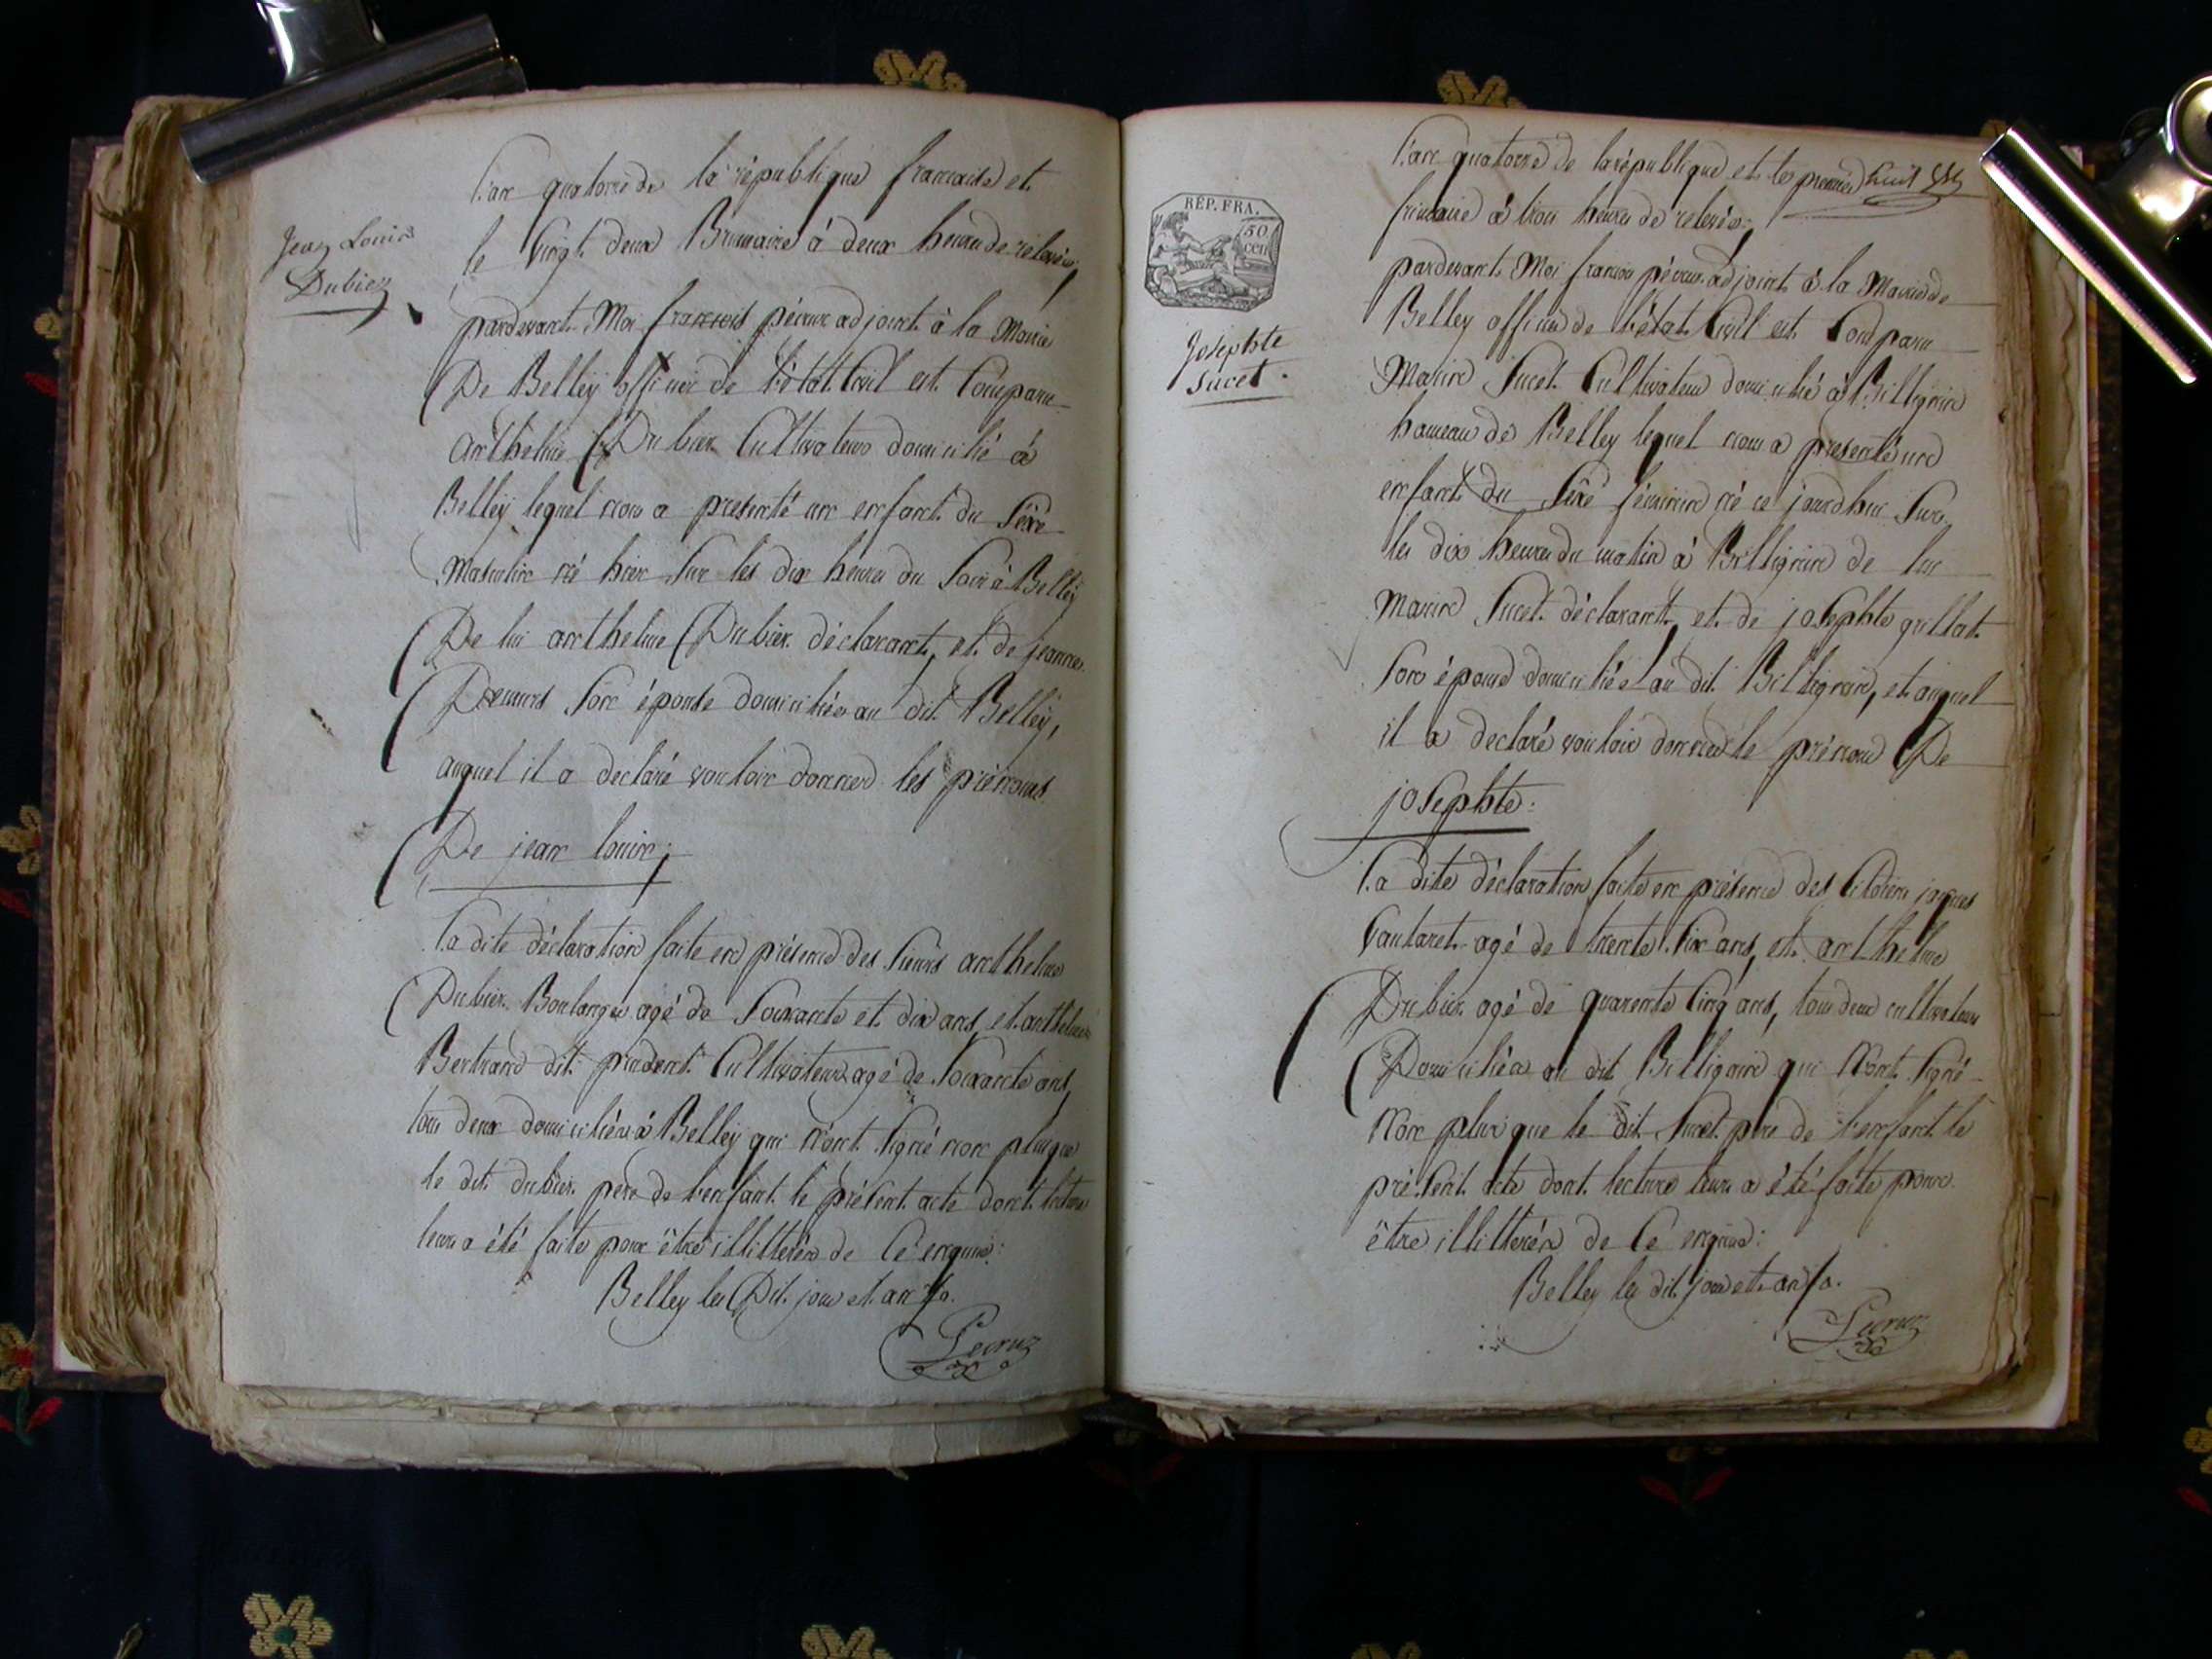 Jean Louis
Dubiez
L'an quatorze de la république francaise et
le vingt deux Brumaire à deux heures de relevée,
pardevant Moi francois pécruz adjoint à la Mairie
De Belley officier de l'état Civil est Comparu
anthelme Dubiez Cultivateur domicilié à
Belley lequel nous a presenté un enfant du Séxe
Masculin né hier Sur les dix heures du Soir à Belley
De lui anthelme Dubiez déclarant, et de jeanne
Son épouse domiciliés au dit Belley,
auquel il a declaré vouloir donner les prénoms
De jean louis;
La dite déclaration faite en présence des Sieurs anthelme
Dubiez Boulanger agé de Soixante et dix ans, et anthelme
Bertrand dit prudent Cultivateur agé de Soixante ans,
tous deux domiciliés à Belley qui n'ont Signé non plus que
le dit dubiez père de l'enfant le présent acte dont lecture
leur a été faite pour être illittérés de Ce enquis:
Belley les Dit jour et an
Pecruz
RÉP. FRA.
50
cen
Josephte
Sucet.
L'an quatorze de la république et le premier huit
frimaire à trois heures de relevée,
pardevant Moi francois pécruz adjoint à la Mairie de
Belley officier de l'état Civil est Comparu
Marin Sucet Cultivateur domicilié à Billignin
hameau de Belley lequel nous a presenté un
enfant du Séxe féminin né ce jourdhui Sur
les dix heures du matin à Billignin de lui
Marin Sucet déclarant, et de josephte gullat
Son épouse domiciliés au dit Billignin, et auquel
il a declaré vouloir donner le prénom De
josephte:
La dite déclaration faite en présence des Citoiens jaques
agé de trente Six ans, et anthelme
Dubiez agé de quarente Cinq ans, tous deux cultivateurs
Domiciliés au dit Billignin qui N'ont Signé
Non plus que le dit Sucet père de l'enfant le
présent acte dont lecture leur a été faite pour
être illittérés de Ce enquis:
Belley les dit jour et an
Pecruz